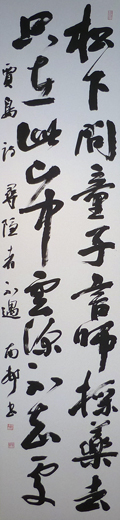 松下問童子言師採藥去
只在此山中雲深不知處
賈島詩 尋隱者不遇 南邨書